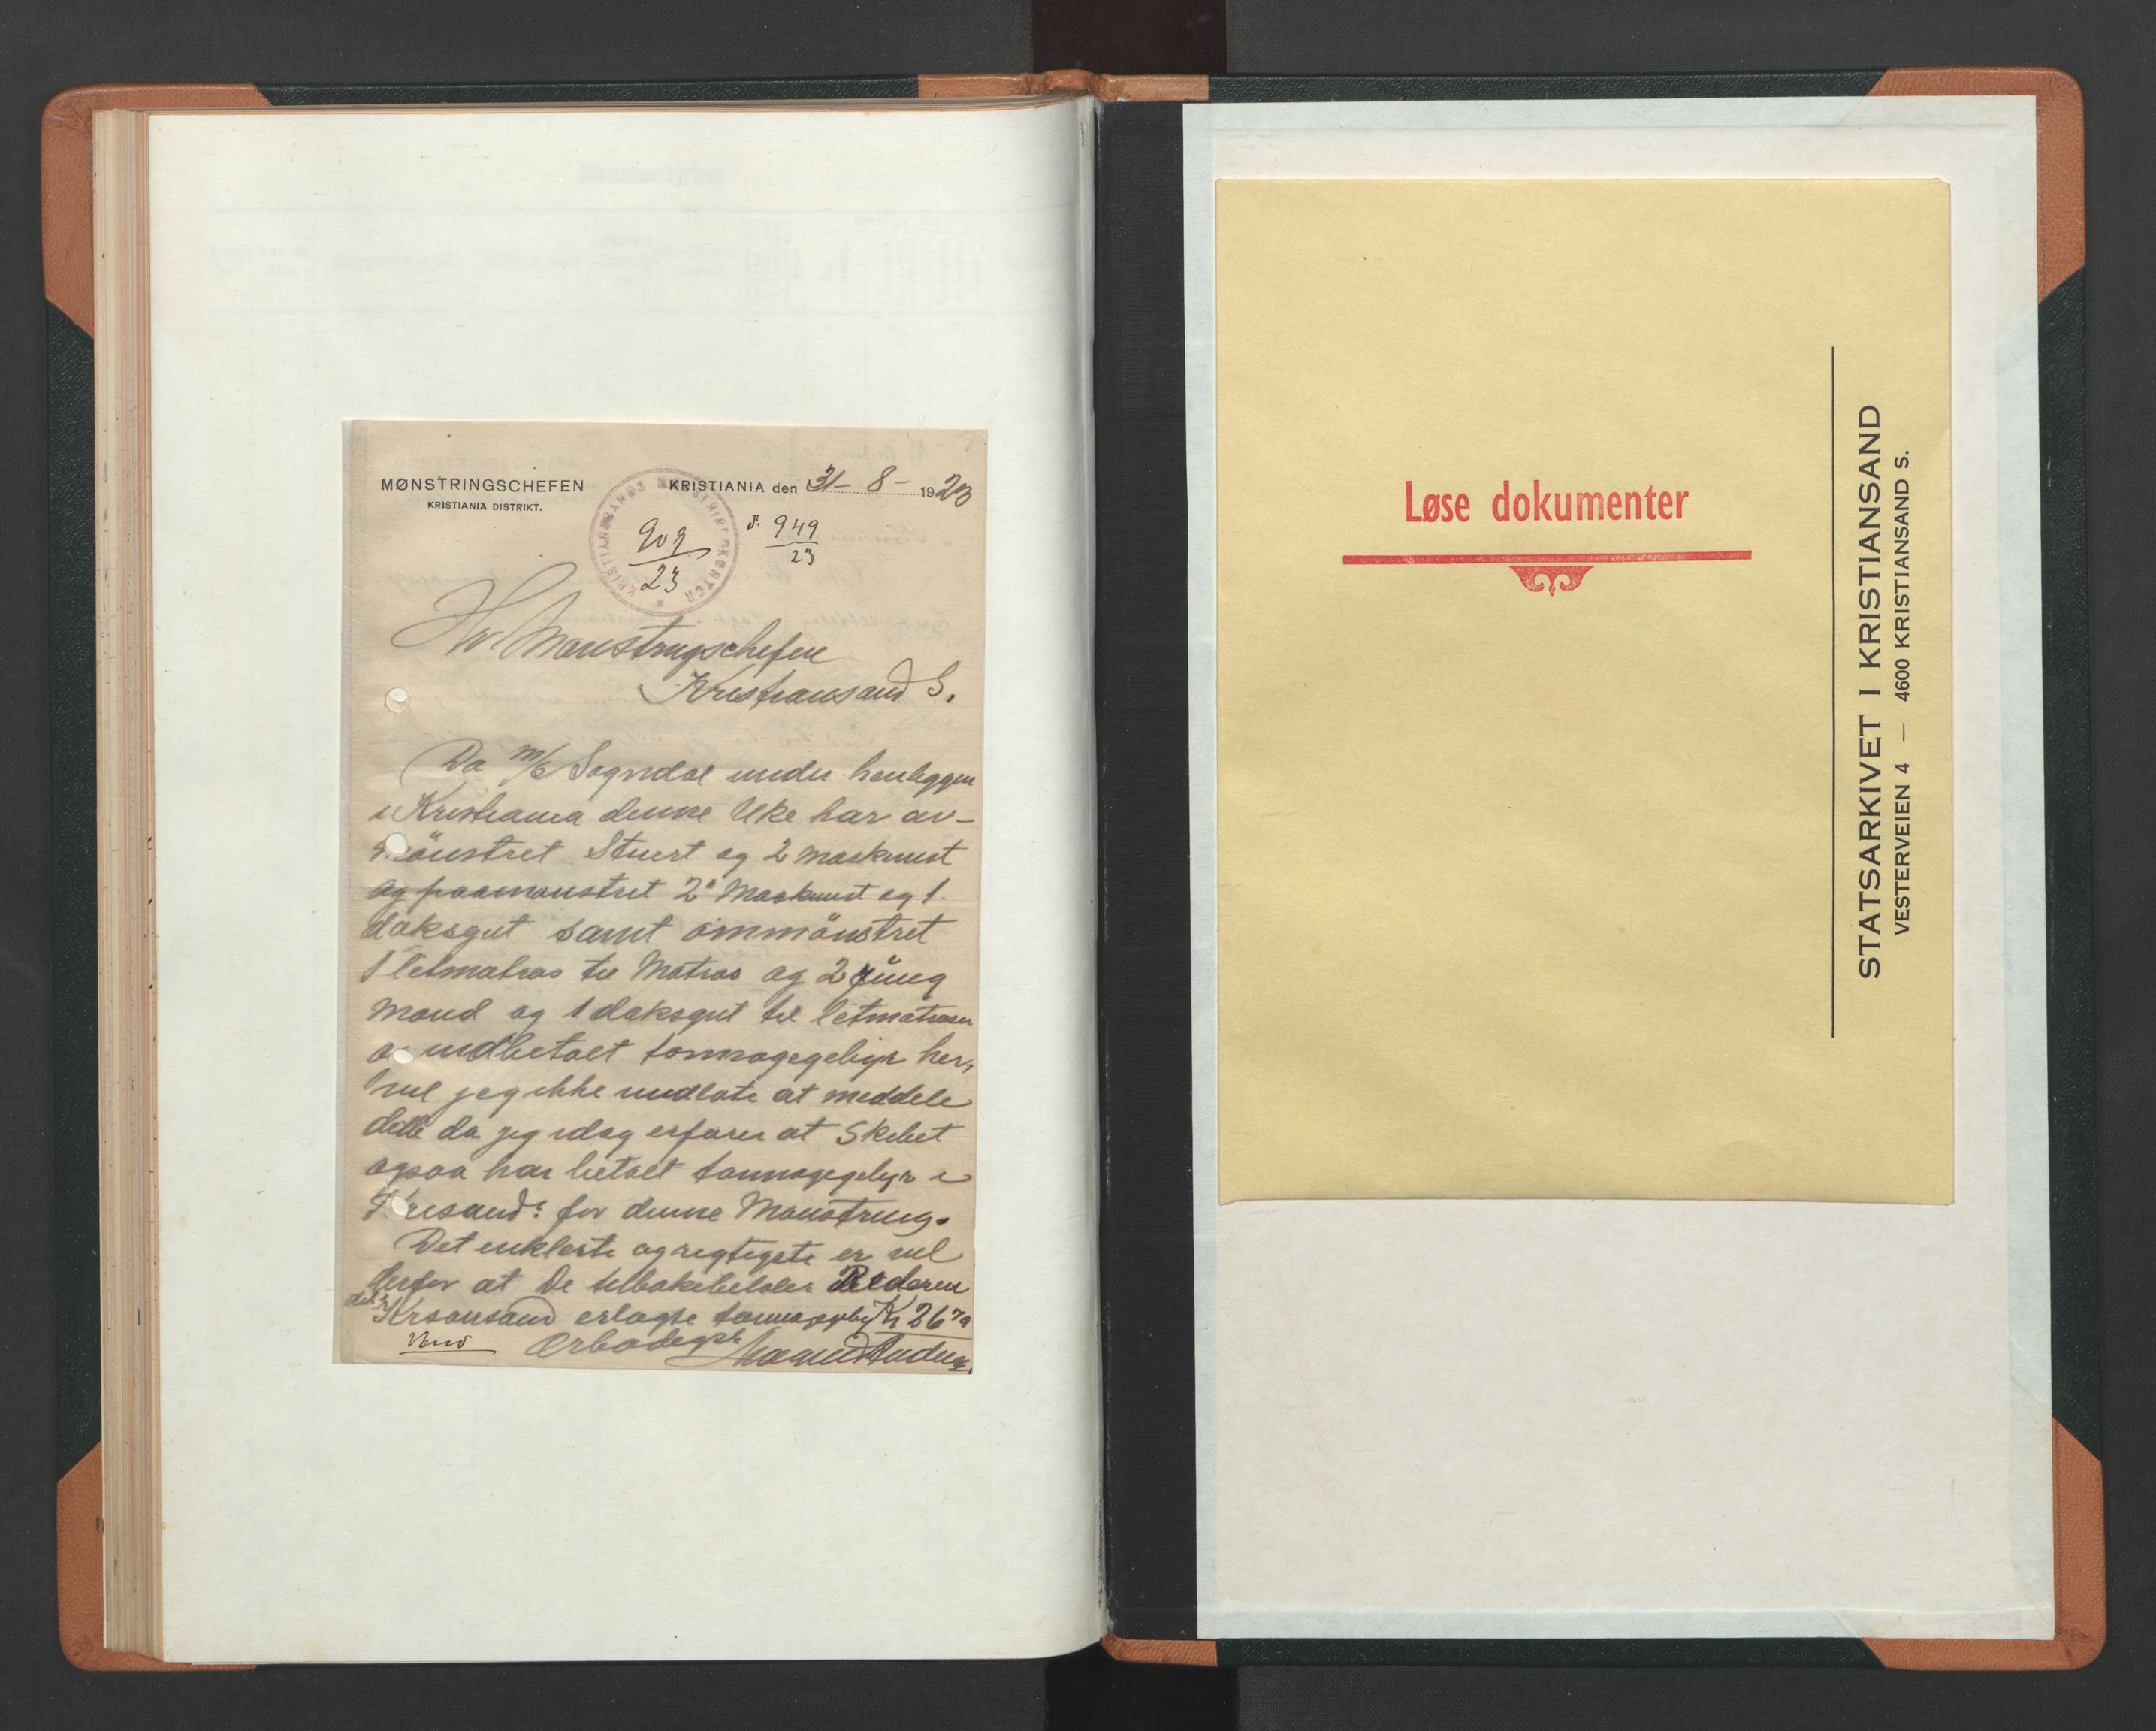 MØNSTRINGSCHEFEN
KRISTIANIA DISTRIKT.
KRISTIANIA den 31 - 8 - 1923
KRISTIANSANDS MØNSTRINGSKONTOR
909
23
J. 949
23
Hr Mønstringschefen
Kristiansand S.
Da M/S Sogndal under henliggen
i Kristiania denne Uke har av-
mönstret Stuert og 2 Maskinist
og paamönstret 2n Maskinist og 1
daksgut samt ommönstret
1 letmatros til Matros og 2 jüng
mand og 1 daksgut til letmatroser
og indbetalt tonnagegebyr her,
vil jeg ikke undlate at meddele
dette da jeg idag erfarer at Skibet
ogsaa har betalt tonnagegebyr i
Krisand S for denne Mönstring.
Det enkleste og rigtigste er vel
derfor at De tilbakebetaler Rederen
det i Krsansand erlagte tonnagegeby Kr 26 70
Vend Ærbødigst Magnus Andersen
Løse dokumenter
STATSARKIVET I KRISTIANSAND
VESTERVEIEN 4 — 4600 KRISTIANSAND S.